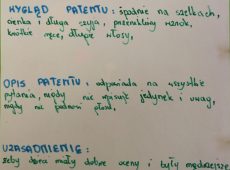 WYGLĄD PATENTU: spodnie na szelkach,
cienka i długa szyja, przenikliwy wzrok,
krótkie ręce, długie włosy,
OPIS PATENTU: odpowiada na wszystkie
pytania, nigdy nie wpisuje jedynek i uwag,
nigdy nie podnosi głosu,
UZASADNIENIE:
żeby dzieci miały dobre oceny i były mądrzejsze